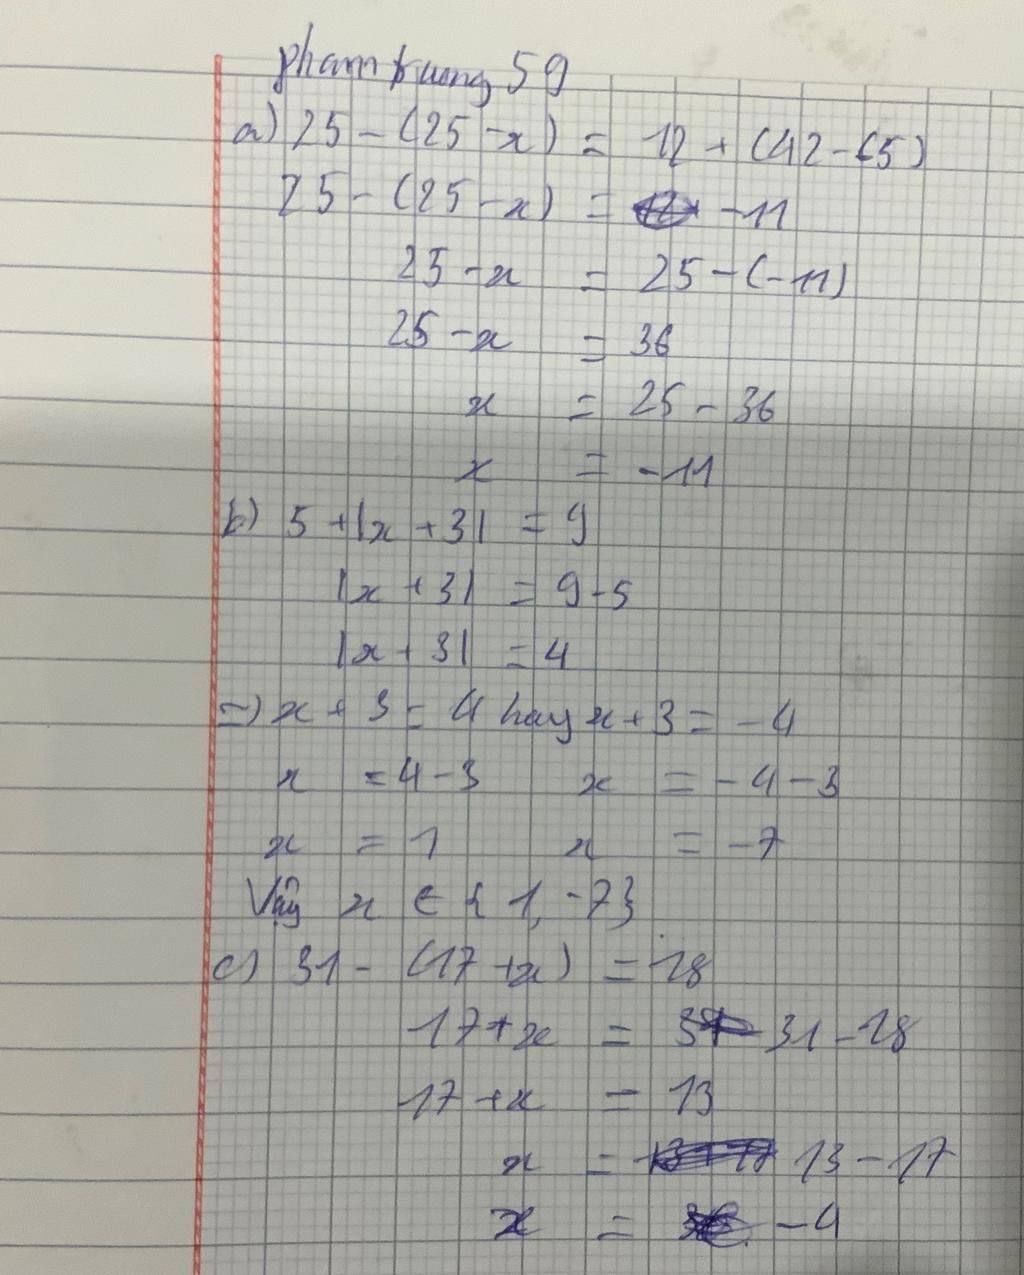 phamtruong 59
a) 25 - (25 - x) = 12 + (42 - 65)
25 - (25 - x) = -11
25 - x = 25 - (-11)
25 - x = 36
x = 25 - 36
x = -11
b) 5 + |x + 3| = 9
|x + 3| = 9 - 5
|x + 3| = 4
=) x + 3 = 4 hay x + 3 = -4
x = 4 - 3 x = -4 - 3
x = 1 x = -7
Vậy x ∈ { 1, -7}
c) 31 - (17 + x) = 18
17 + x = 31 - 18
17 + x = 13
x = 13 - 17
x = -4